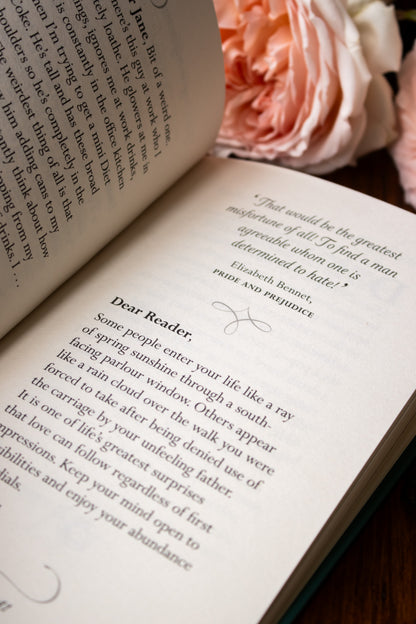 r Jane, Bit of a weird one,
here's this guy at work who I
tely loathe. He glowers at me in
ings, ignores me at work drinks,
is constantly in the office kitchen
hen I'm trying to get a mid Diet
Coke. He's tall and has these broad
oulders so he's completely in the
The weirdest thing of all is that
antly think about how
him adding cars to my
ping from my
drinks. . . .
'That would be the greatest
misfortune of all! To find a man
agreeable whom one is
determined to hate!'
Elizabeth Bennet,
PRIDE AND PREJUDICE
Dear Reader,
Some people enter your life like a ray
of spring sunshine through a south-
facing parlour window. Others appear
like a rain cloud over the walk you were
forced to take after being denied use of
the carriage by your unfeeling father.
It is one of life's greatest surprises
that love can follow regardless of first
mpressions. Keep your mind open to
sibilities and enjoy your abundance
dials.